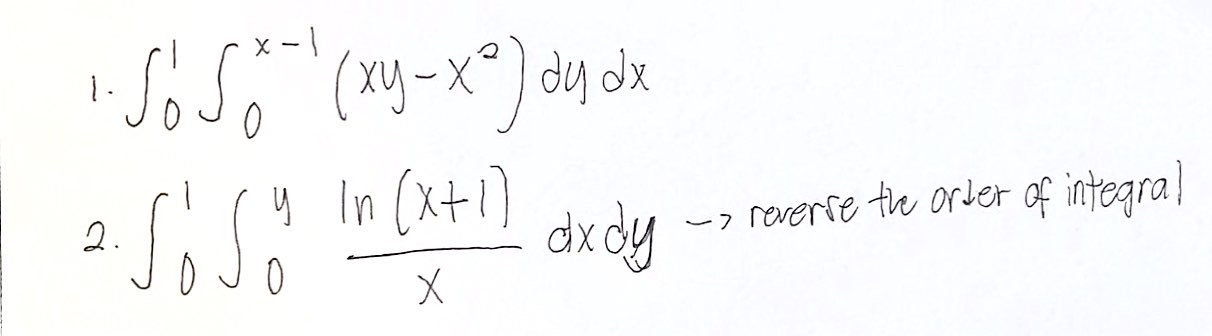 1. ∫₀¹ ∫₀ˣ⁻¹ (xy - x²) dy dx
2. ∫₀¹ ∫₀ʸ ln (x+1) / x dx dy -> reverse the order of integral